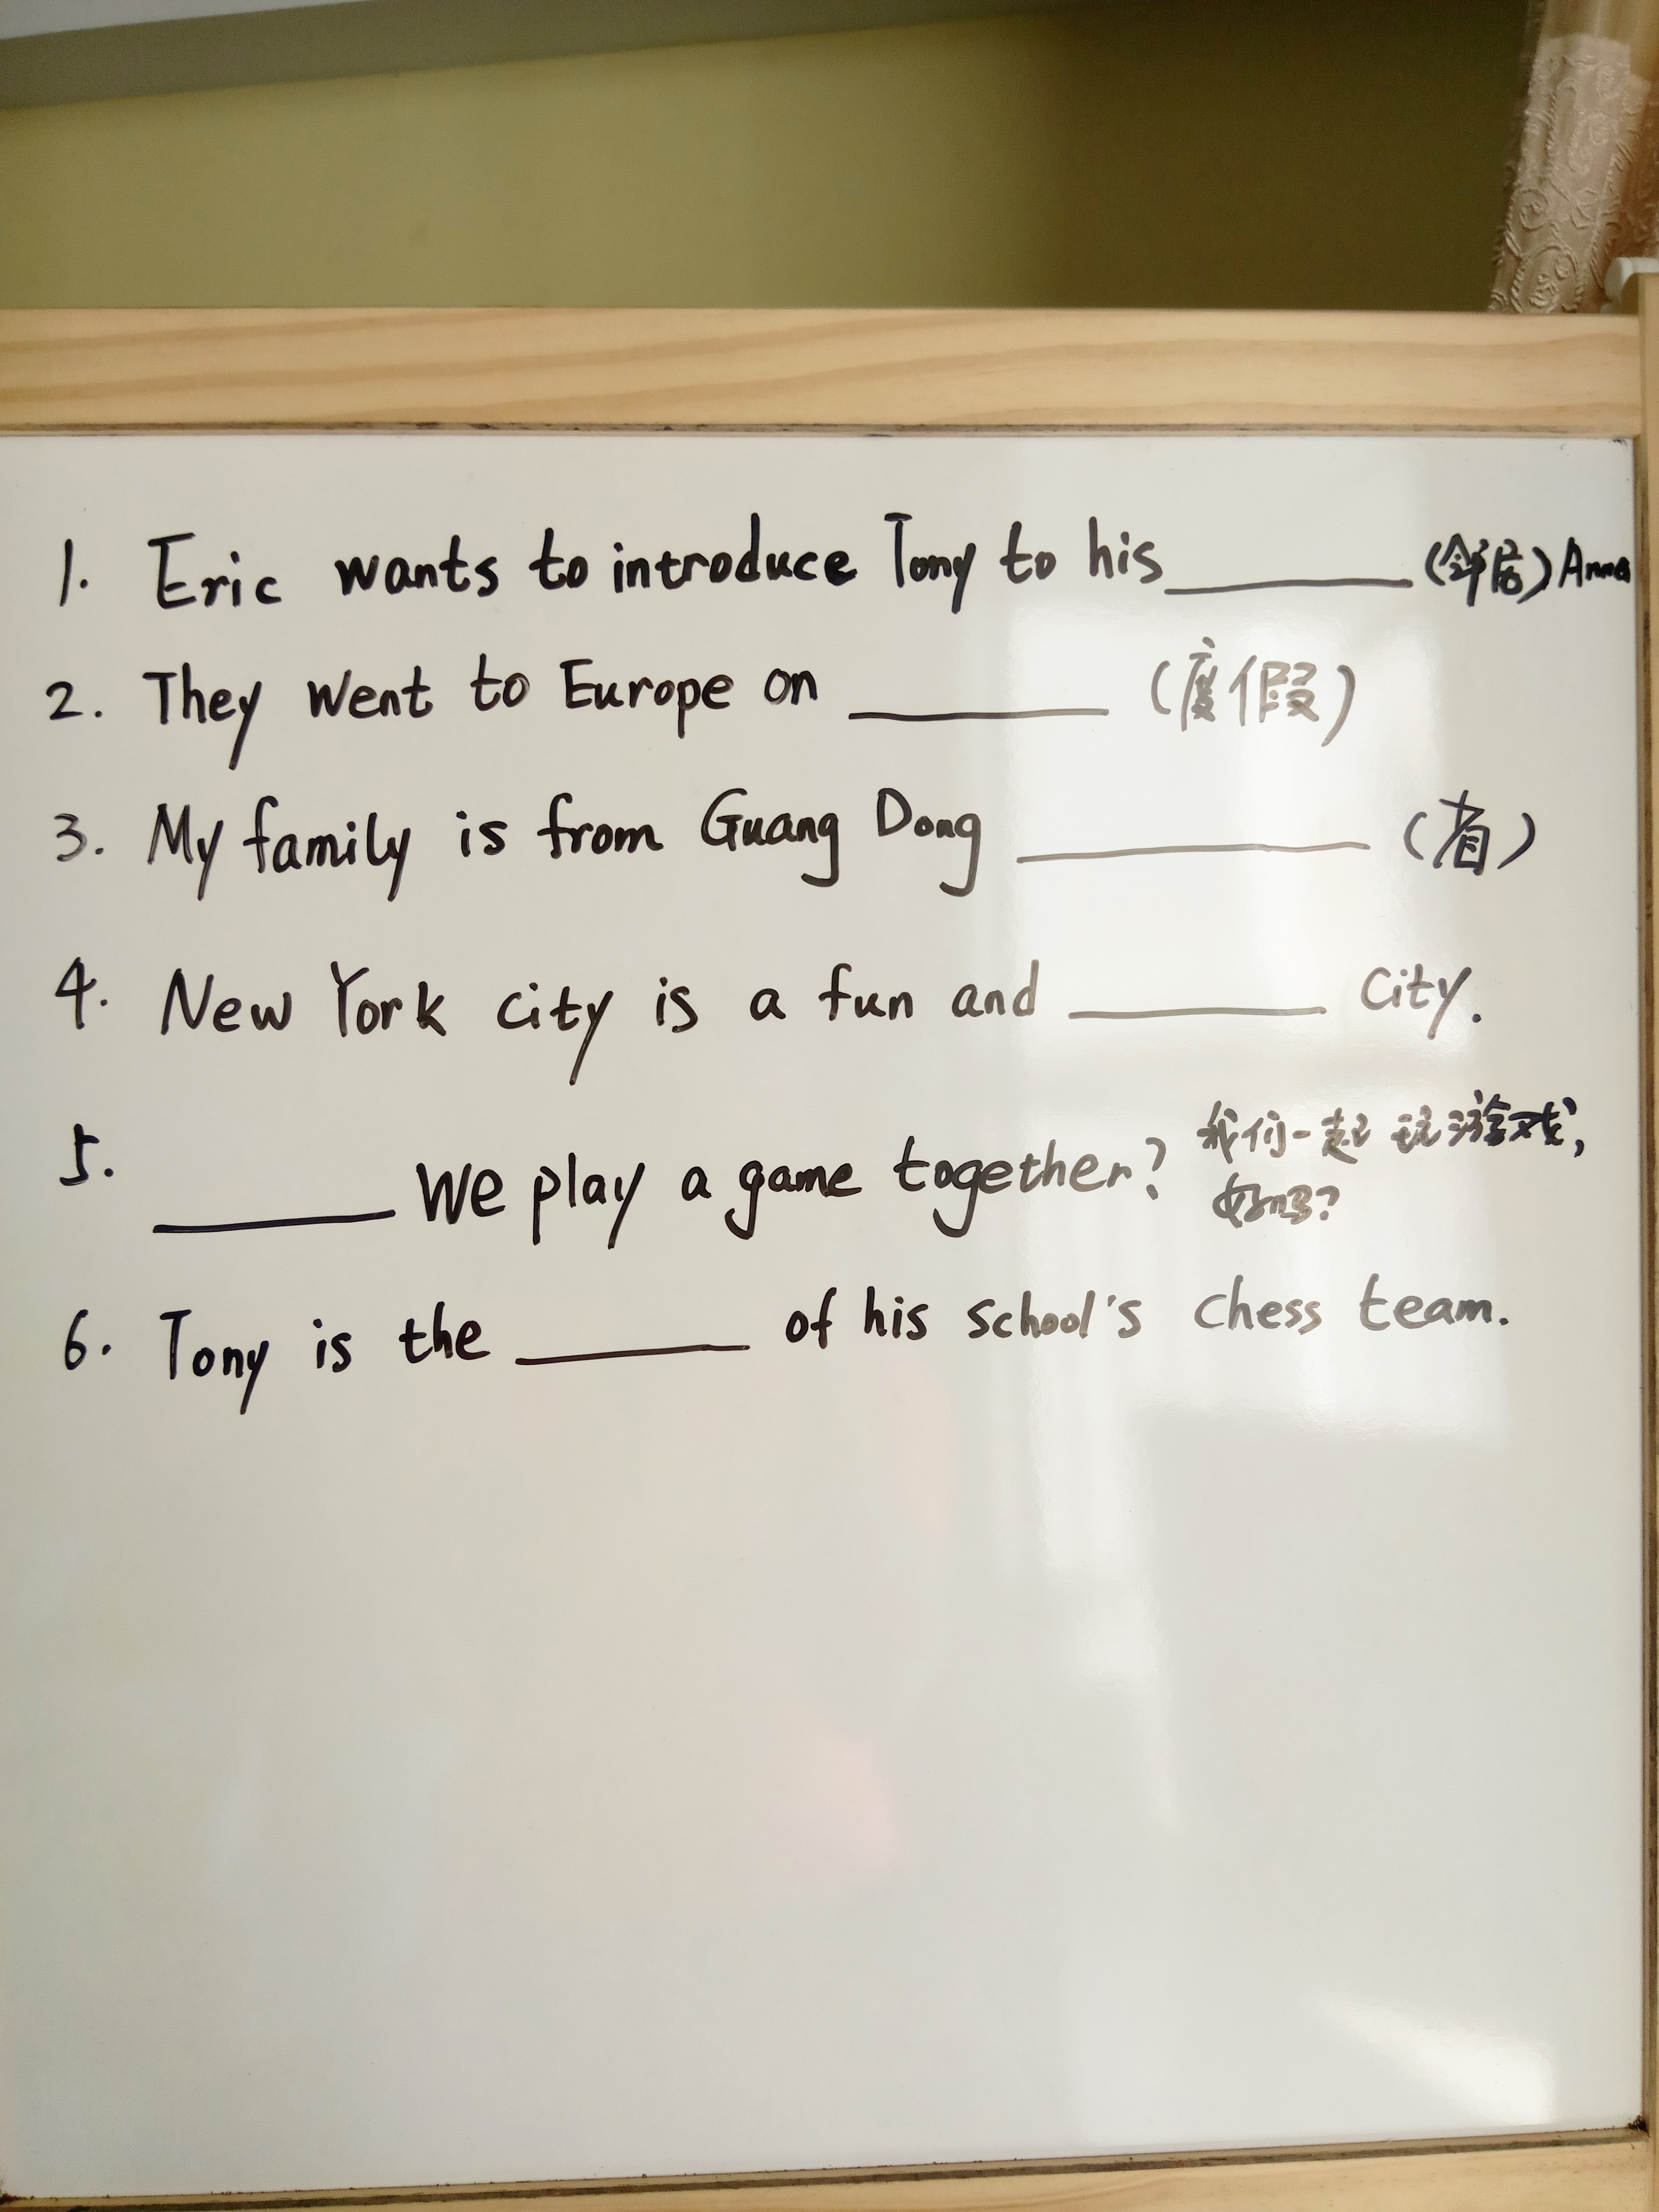 1. Eric wants to introduce Tony to his ________ (邻居) Anna
2. They went to Europe on ________ (度假)
3. My family is from Guang Dong ________ (省)
4. New York city is a fun and ________ city.
5. ________ We play a game together? 我们一起玩游戏,
好吗?
6. Tony is the ________ of his school's chess team.